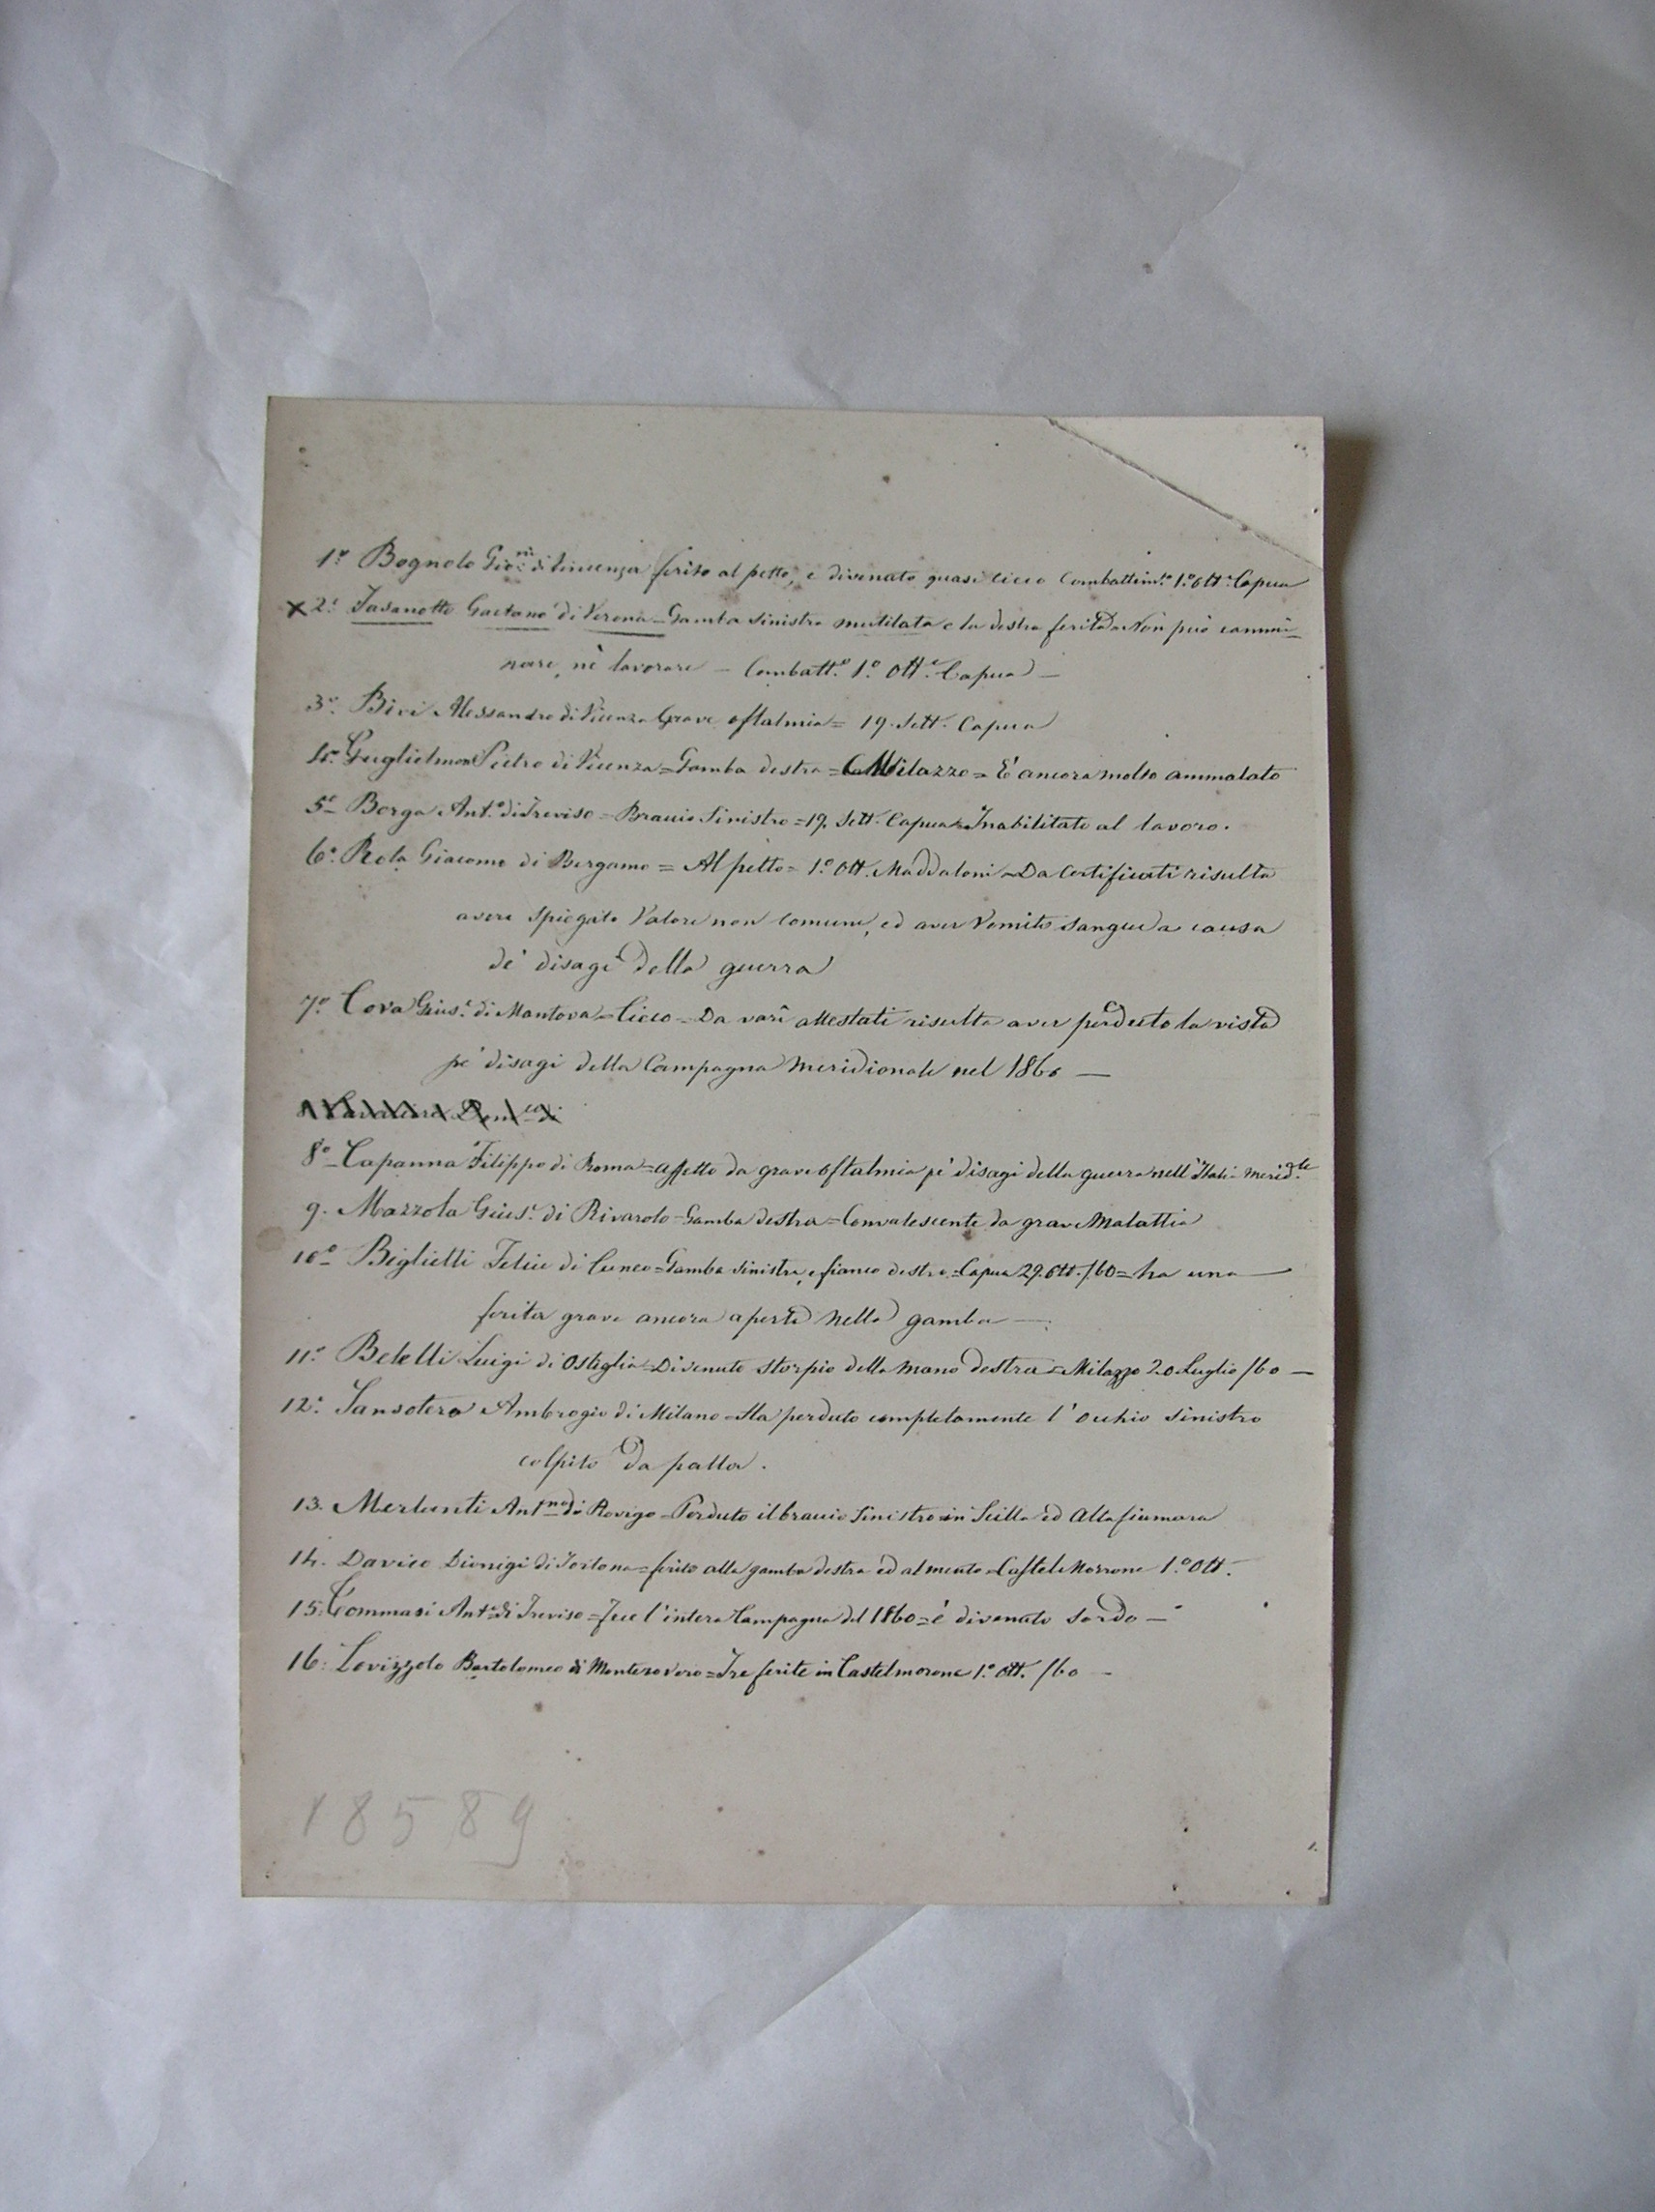 1.º Bognolo Gio.ni di Vincenza ferito al petto, e divenuto quasi cieco Combattim.to 1.º ott.e Capua
X 2.º Fasanotto Gaetano di Verona = Gamba sinistra mutilata e la destra ferita = Non può cammi-
nare, nè lavorare - Combatt.º 1.º Ott.e Capua -
3.º Bivi Alessandro di Vicenza Grave oftalmia = 19. Sett. Capua
4.º Guglielmon Pietro di Vicenza = Gamba destra = Milazzo = E' ancora molto ammalato
5.º Borga Ant.º di Treviso = Braccio Sinistro = 19. Sett. Capua = Inabilitato al lavoro.
6.º Rola Giacomo di Bergamo = Al petto = 1.º Ott. Maddaloni = Da Certificati risulta
avere spiegato Valore non comune, ed aver Vomito sangue a causa
de' disagi della guerra
7.º Cova Gius.e di Mantova = Cieco = Da varî attestati risulta aver perduto la vista
pe' disagi della Campagna Meridionale nel 1860 —
8.º Capanna Filippo di Roma = affetto da grave oftalmia pe' disagi della guerra nell'Italia merid.le
9. Mazzola Gius.e di Rivarolo = Gamba destra = Convalescente da grave Malattia
10.º Biglietti Felice di Cuneo = Gamba sinistra, e fianco destro = Capua 29. Ott. /60 = ha una —
ferita grave ancora aperta nella gamba —
11.º Belelli Luigi di Ostiglia = Divenuto storpio della mano destra = Milazzo 20 Luglio /60 —
12.º Sansotera Ambrogio di Milano = Ha perduto completamente l'occhio sinistro
colpito da palla.
13. Merlunti Ant.no di Rovigo = Perduto il braccio Sinistro in Scilla ed Altafiumara
14. Davico Dionigi di Tortona = ferito alla gamba destra ed al mento = Castel Morrone 1.º Ott.
15. Tommasi Ant.º di Treviso = Fece l'intera Campagna del 1860 = è divenuto sordo —
16. Lovizzolo Bartolomeo di = Tre ferite in Castelmorone 1.º Ott. /60 -
18589